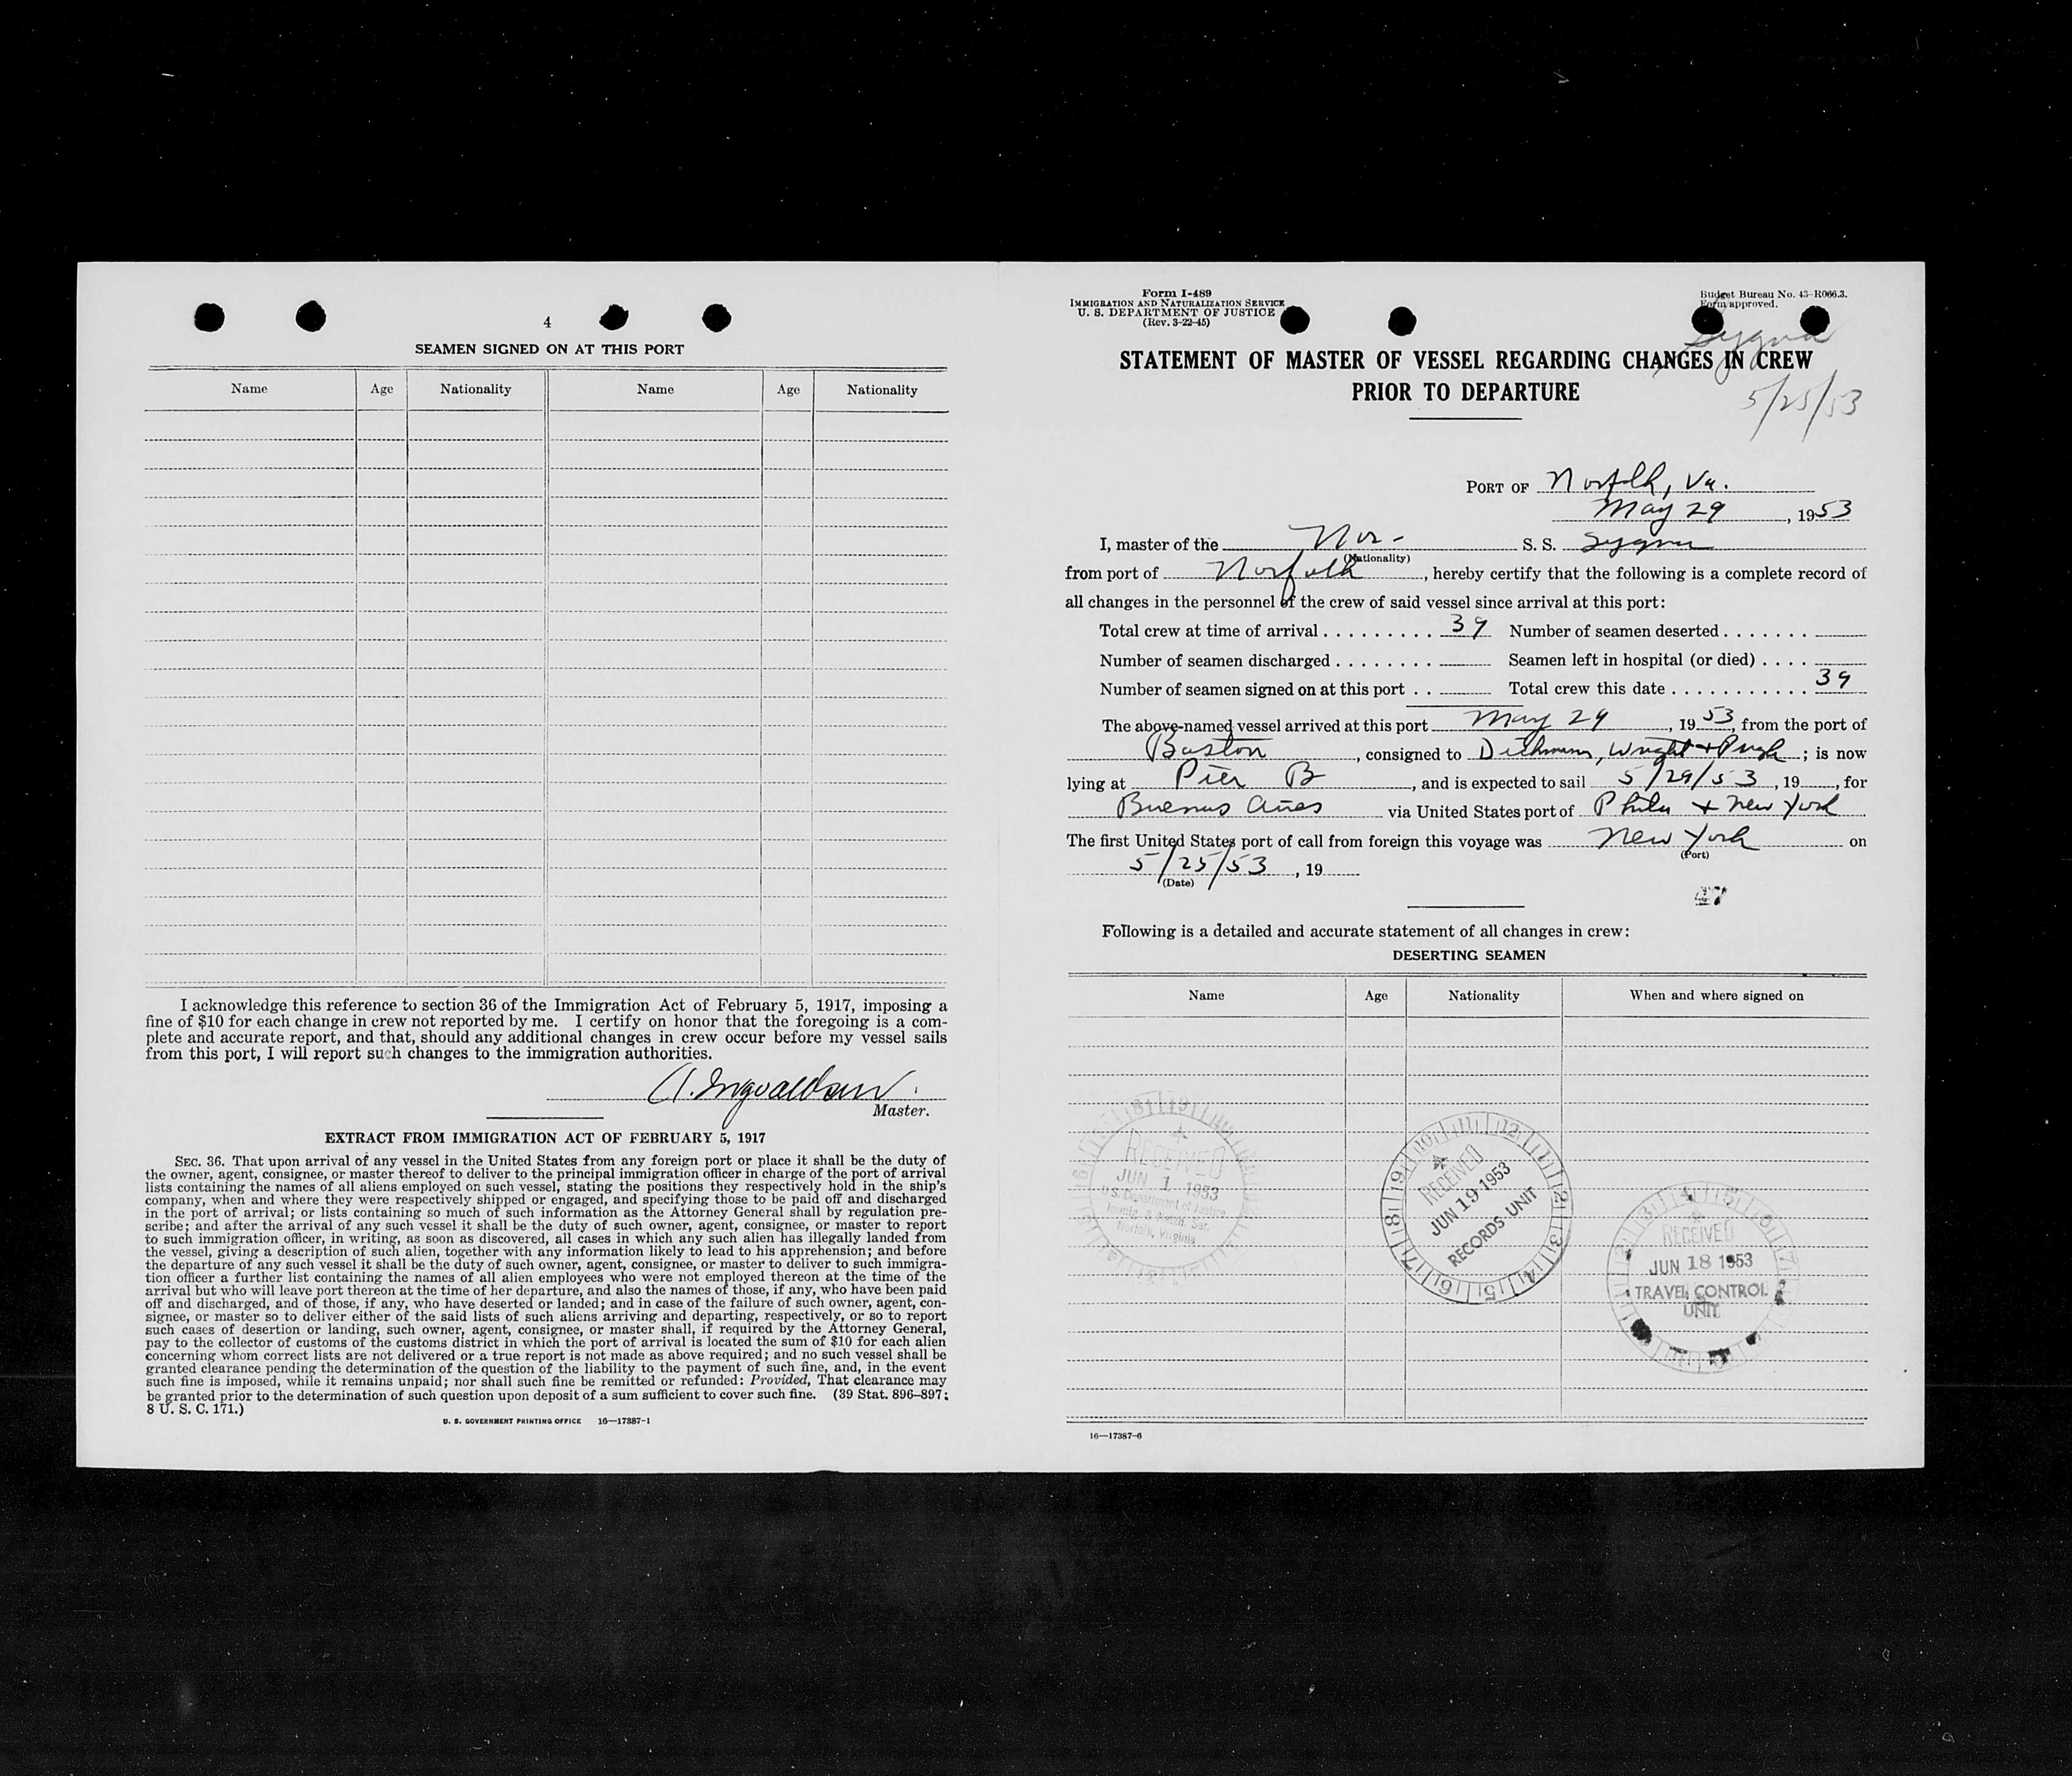 4
SEAMEN SIGNED ON AT THIS PORT
Name Age Nationality Name Age Nationality
I acknowledge this reference to section 36 of the Immigration Act of February 5, 1917, imposing a
fine of $10 for each change in crew not reported by me. I certify on honor that the foregoing is a com-
plete and accurate report, and that, should any additional changes in crew occur before my vessel sails
from this port, I will report such changes to the immigration authorities.
Master.
EXTRACT FROM IMMIGRATION ACT OF FEBRUARY 5, 1917
SEC. 36. That upon arrival of any vessel in the United States from any foreign port or place it shall be the duty of
the owner, agent, consignee, or master thereof to deliver to the principal immigration officer in charge of the port of arrival
lists containing the names of all aliens employed on such vessel, stating the positions they respectively hold in the ship's
company, when and where they were respectively shipped or engaged, and specifying those to be paid off and discharged
in the port of arrival; or lists containing so much of such information as the Attorney General shall by regulation pre-
scribe; and after the arrival of any such vessel it shall be the duty of such owner, agent, consignee, or master to report
to such immigration officer, in writing, as soon as discovered, all cases in which any such alien has illegally landed from
the vessel, giving a description of such alien, together with any information likely to lead to his apprehension; and before
the departure of any such vessel it shall be the duty of such owner, agent, consignee, or master to deliver to such immigra-
tion officer a further list containing the names of all alien employees who were not employed thereon at the time of the
arrival but who will leave port thereon at the time of her departure, and also the names of those, if any, who have been paid
off and discharged, and of those, if any, who have deserted or landed; and in case of the failure of such owner, agent, con-
signee, or master so to deliver either of the said lists of such aliens arriving and departing, respectively, or so to report
such cases of desertion or landing, such owner, agent, consignee, or master shall, if required by the Attorney General,
pay to the collector of customs of the customs district in which the port of arrival is located the sum of $10 for each alien
concerning whom correct lists are not delivered or a true report is not made as above required; and no such vessel shall be
granted clearance pending the determination of the question of the liability to the payment of such fine, and, in the event
such fine is imposed, while it remains unpaid; nor shall such fine be remitted or refunded: Provided, That clearance may
be granted prior to the determination of such question upon deposit of a sum sufficient to cover such fine. (39 Stat. 896–897;
8 U. S. C. 171.)
U. S. GOVERNMENT PRINTING OFFICE 16—17387-1
Form I-489
IMMIGRATION AND NATURALIZATION SERVICE
U. S. DEPARTMENT OF JUSTICE
(Rev. 3-22-45)
Budget Bureau No. 43-R066.3.
Form approved.
Sygna
STATEMENT OF MASTER OF VESSEL REGARDING CHANGES IN CREW
PRIOR TO DEPARTURE
5/25/53
PORT OF Norfolk, Va.
May 29, 1953
I, master of the Nor- S. S. Sygna
(Nationality)
from port of Norfolk, hereby certify that the following is a complete record of
all changes in the personnel of the crew of said vessel since arrival at this port:
Total crew at time of arrival 39 Number of seamen deserted
Number of seamen discharged Seamen left in hospital (or died)
Number of seamen signed on at this port Total crew this date 39
The above-named vessel arrived at this port May 29, 1953, from the port of
Boston, consigned to Dichmann, Wright & Pugh; is now
lying at Pier B, and is expected to sail 5/29/53, 19, for
Buenos Aires via United States port of Phila + New York.
The first United States port of call from foreign this voyage was New York on
(Port)
5/25/53, 19
(Date)
47
Following is a detailed and accurate statement of all changes in crew:
DESERTING SEAMEN
Name Age Nationality When and where signed on
RECEIVED
JUN 1 1953
U.S. Department of Justice
Immig. & Natzn. Ser.
Norfolk, Virginia
RECEIVED
JUN 19 1953
RECORDS UNIT
RECEIVED
JUN 18 1953
TRAVEL CONTROL
UNIT
16—17387-6